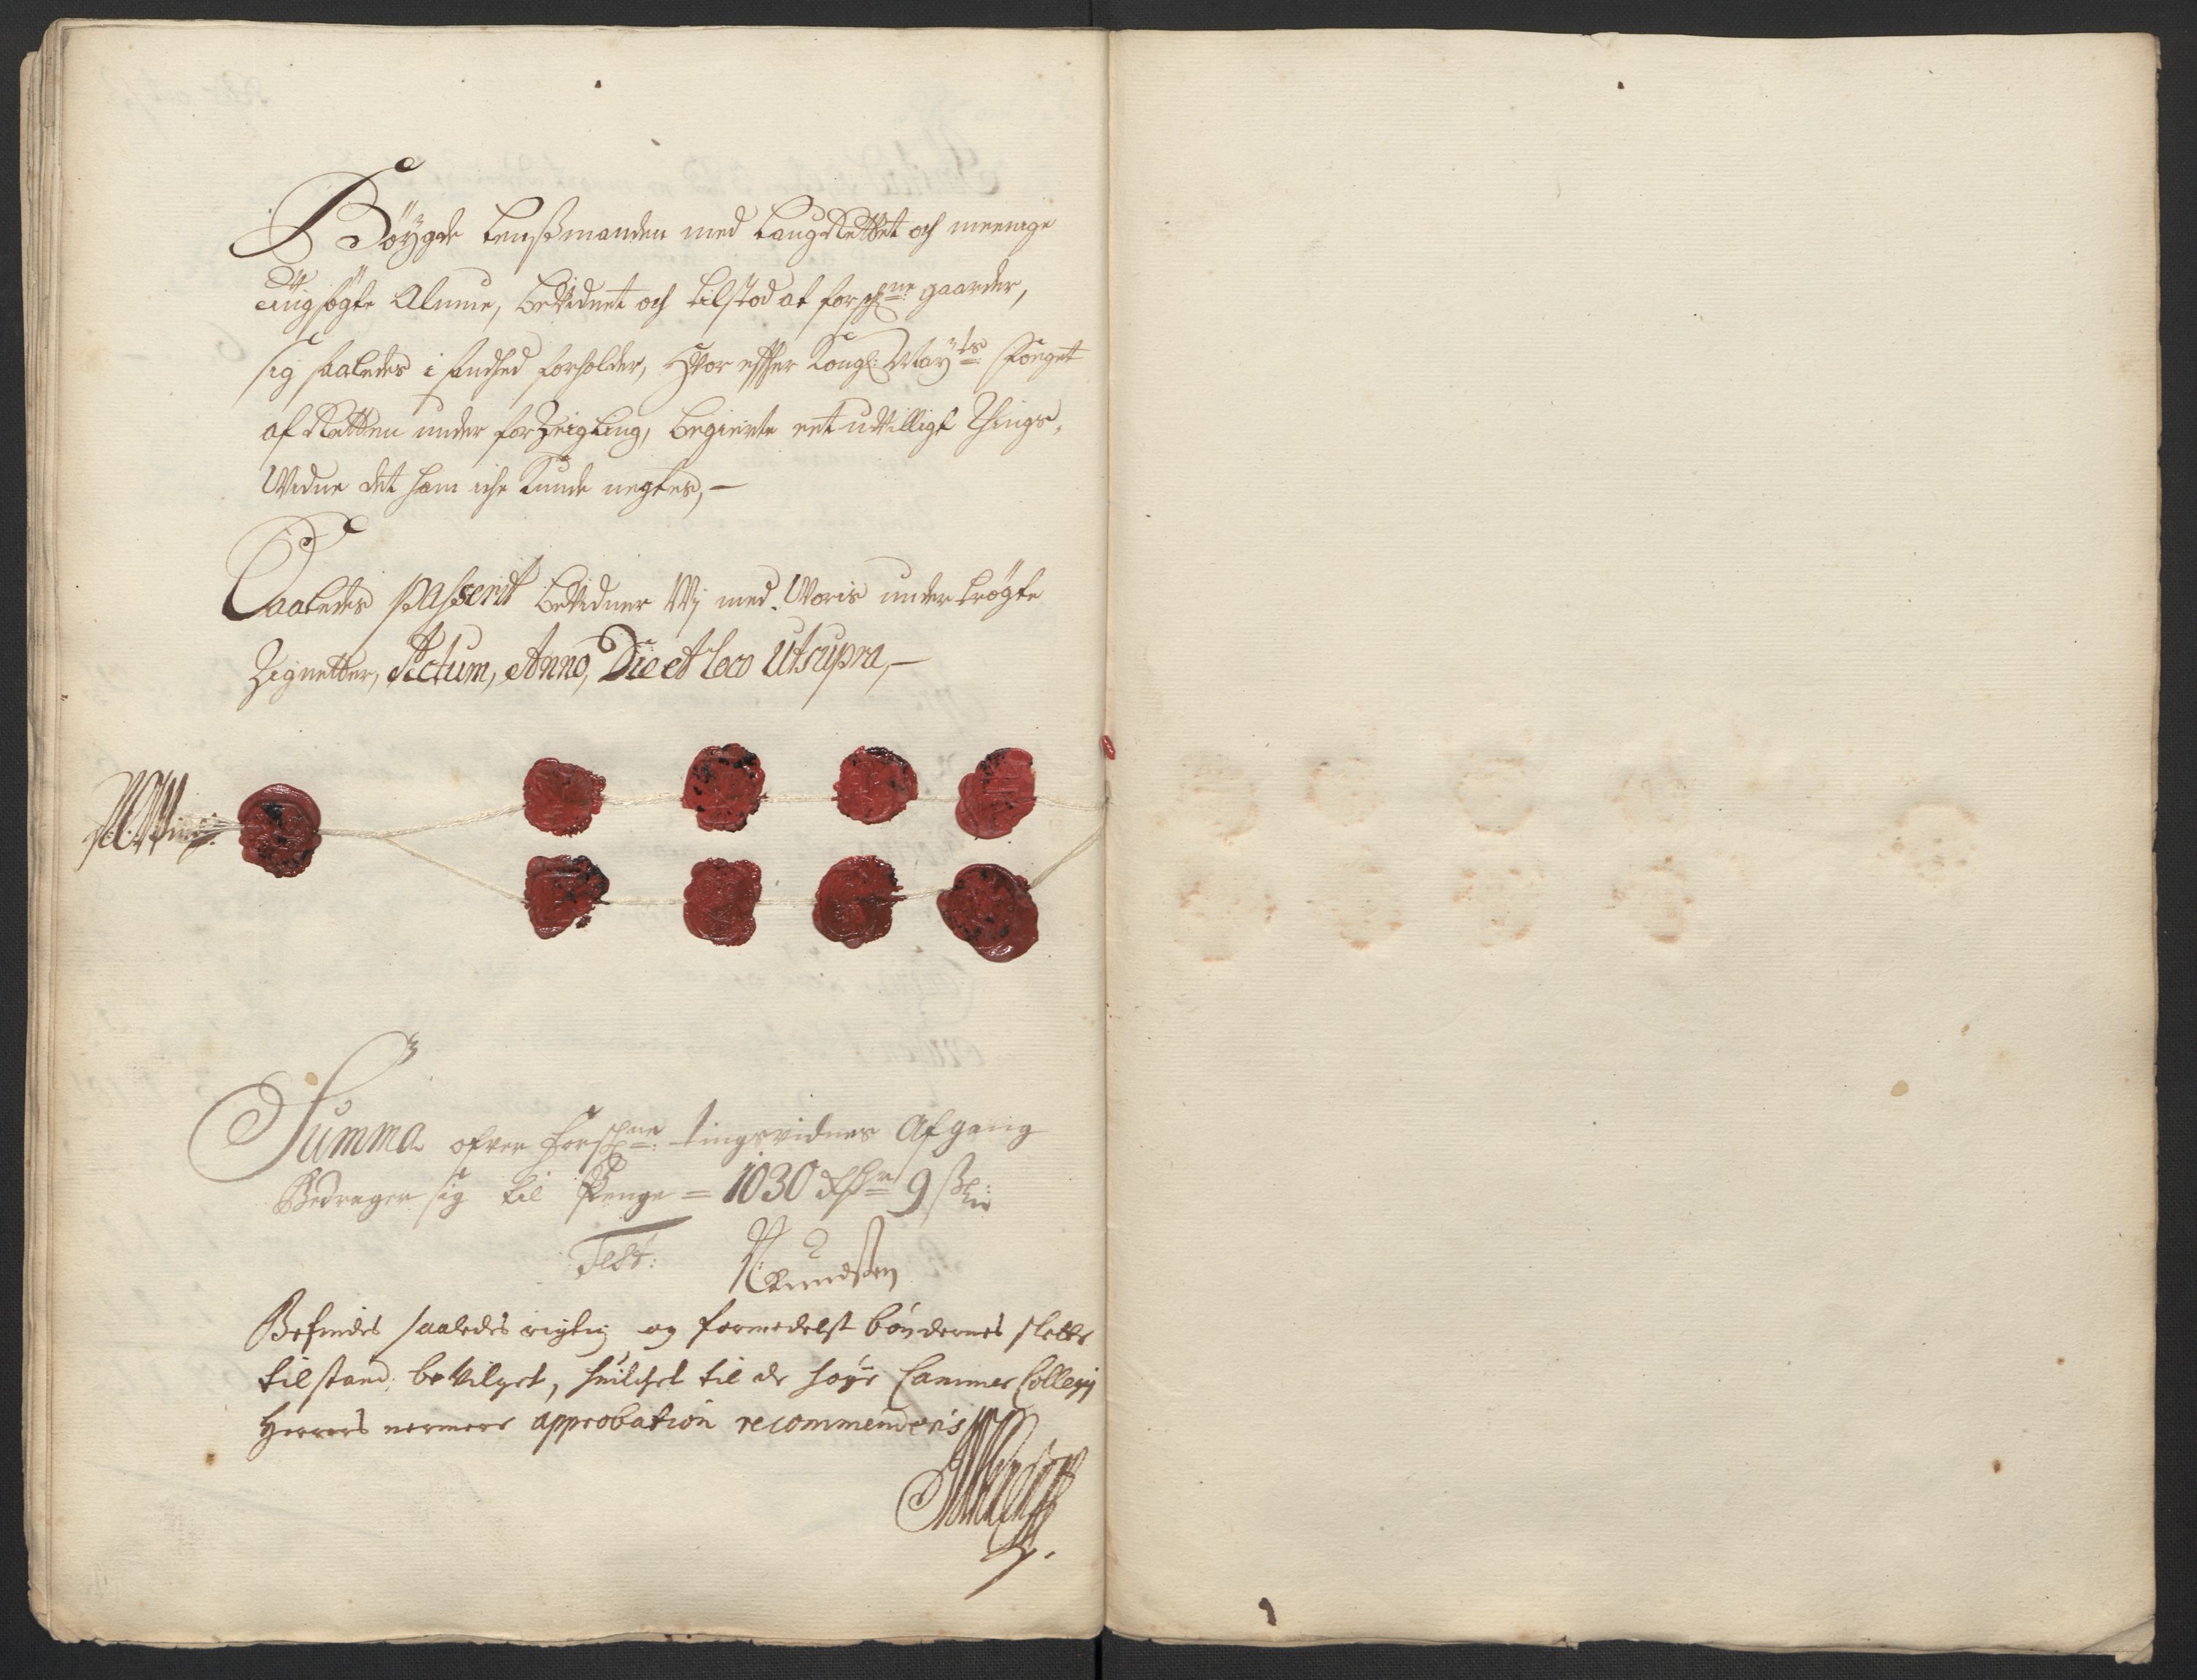 Böygde Lensßmanden med LaugRettet och meenige
tingsögte Almue, beVidnet och tilstod at forschne: gaarder,
sig saaledes i sandhed forholder, Hvor efter Kongl: Mayts: Foeget
af Retten under forZeigling, begierte eet uVilligt Tings,
Widne det ham iche Kunde negtes,—
Saaledes passerit beVidner Wj med Woris under trögte
Zignetter, Actum, Anno, Die et loco Utsupra,—
Summa ofver forschne: tingsvidnes Afgang
Bedrager sig til Penge = 1030 Rdr 9 ß
Test: Knudßen
Befindes saaledes rigtig og formedelst böndernes slette
tilstand, beVilget, huilchet til de höye Cammer Collegij
Herrers nermere approbation recommenderis